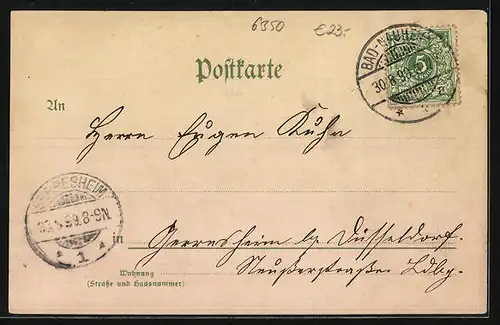 6350 €23-
BAD-NAUHEIM
30.8.99.
5
Postkarte
An
Herrn Eugen Kuhn
GERRESHEIM
30.8.99.8-9N.
1
in Gerresheim bg. Düsseldorf.
Wohnung
(Straße und Hausnummer)
Neußerstraße Ldbg.